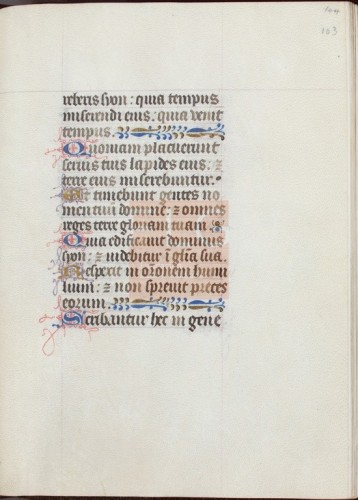 103
reberis syon : quia tempus
miserendi eius : quia venit
tempus .
Quoniam placuerunt
seruis tuis lapides eius : ⁊
terre eius miserebuntur .
Et timebunt gentes no
men tuū domine : ⁊ omnes
reges terre gloriam tuam .
Quia edificauit dominus
syon : ⁊ uidebitur ī gl̄ia sua .
Respexit in or̄onem humi
lium : ⁊ non spreuit preces
eorum .
Scribantur hec in gene